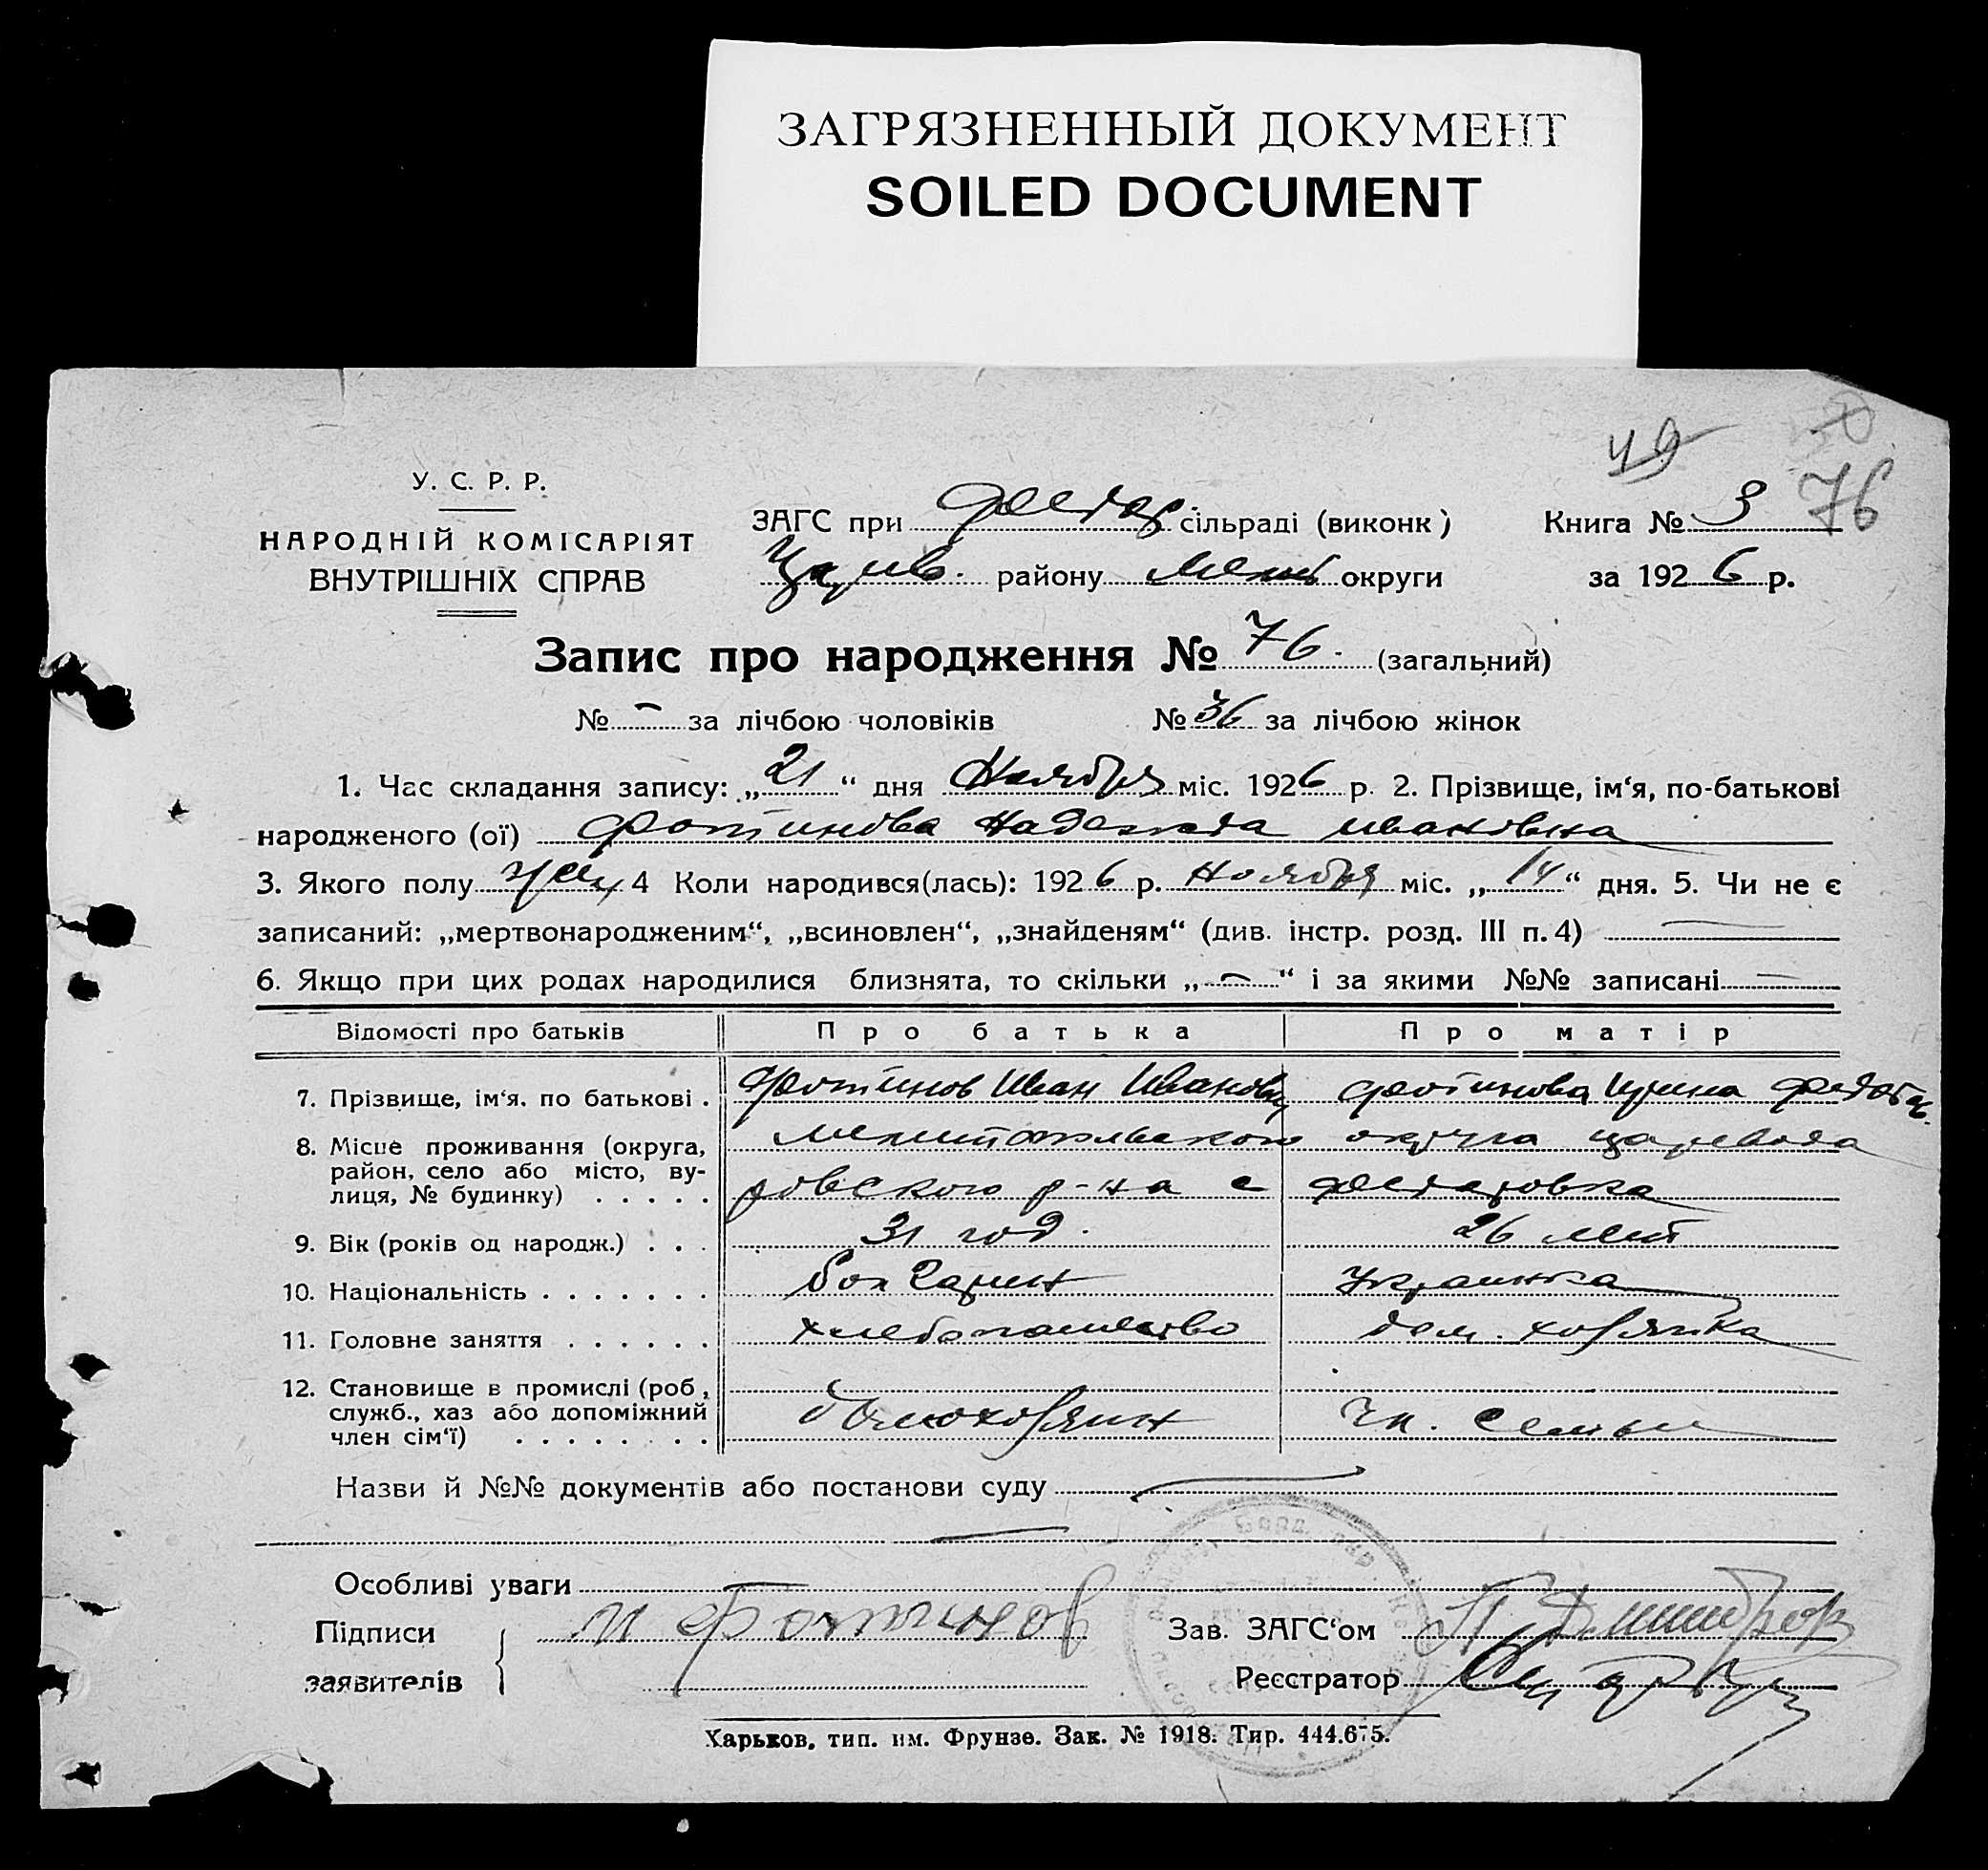 ЗАГРЯЗНЕННЫЙ ДОКУМЕНТ
SOILED DOCUMENT
49
76
У. С. Р. Р.
НАРОДНІЙ КОМІСАРІЯТ
ВНУТРІШНІХ СПРАВ
ЗАГС при Федор. сільраді (виконк) Книга № 3
Царив. району Мелит округи за 1926 р.
Запис про народження № 76. (загальний)
№ – за лічбою чоловіків № 36 за лічбою жінок
1. Час складання запису: „21“ дня Ноября міс. 1926 р. 2. Прізвище, ім‘я, по-батькові
народженого (ої) Фотинова Надежда Ивановна
3. Якого полу жен 4 Коли народився(лась): 1926 р. Ноября міс. „14“ дня. 5. Чи не є
записаний: „мертвонародженим“, „всиновлен“, „знайденям“ (див. інстр. розд. III п. 4) —
6. Якщо при цих родах народилися близнята, то скільки „–“ і за якими №№ записані —
Відомості про батьків Про батька Про матір
7. Прізвище, ім‘я. по батькові . Фотинов Иван Иванович Фотинова Ирина Федотов.
8. Місце проживання (округа, район, село або місто, вулиця, № будинку) . . . . . Мелитопольского округа Царевода
ровского р-на с Федоровка
9. Вік (років од народж.) . . . 31 год. 26 лет
10. Національність . . . . . . . болгарин Украинка
11. Головне заняття . . . . . . хлебопашество дом. хозяйка
12. Становище в промислі (роб, служб., хаз або допоміжний член сім‘ї) . . . . . . . . домохозяин чл. семьи
Назви й №№ документів або постанови суду —
—
Особливі уваги
Підписи
заявителів
И Фотинов
Зав. ЗАГС‘ом П Димитров
Реєстратор
Харьков, тип. им. Фрунзе. Зак. № 1918. Тир. 444.675.